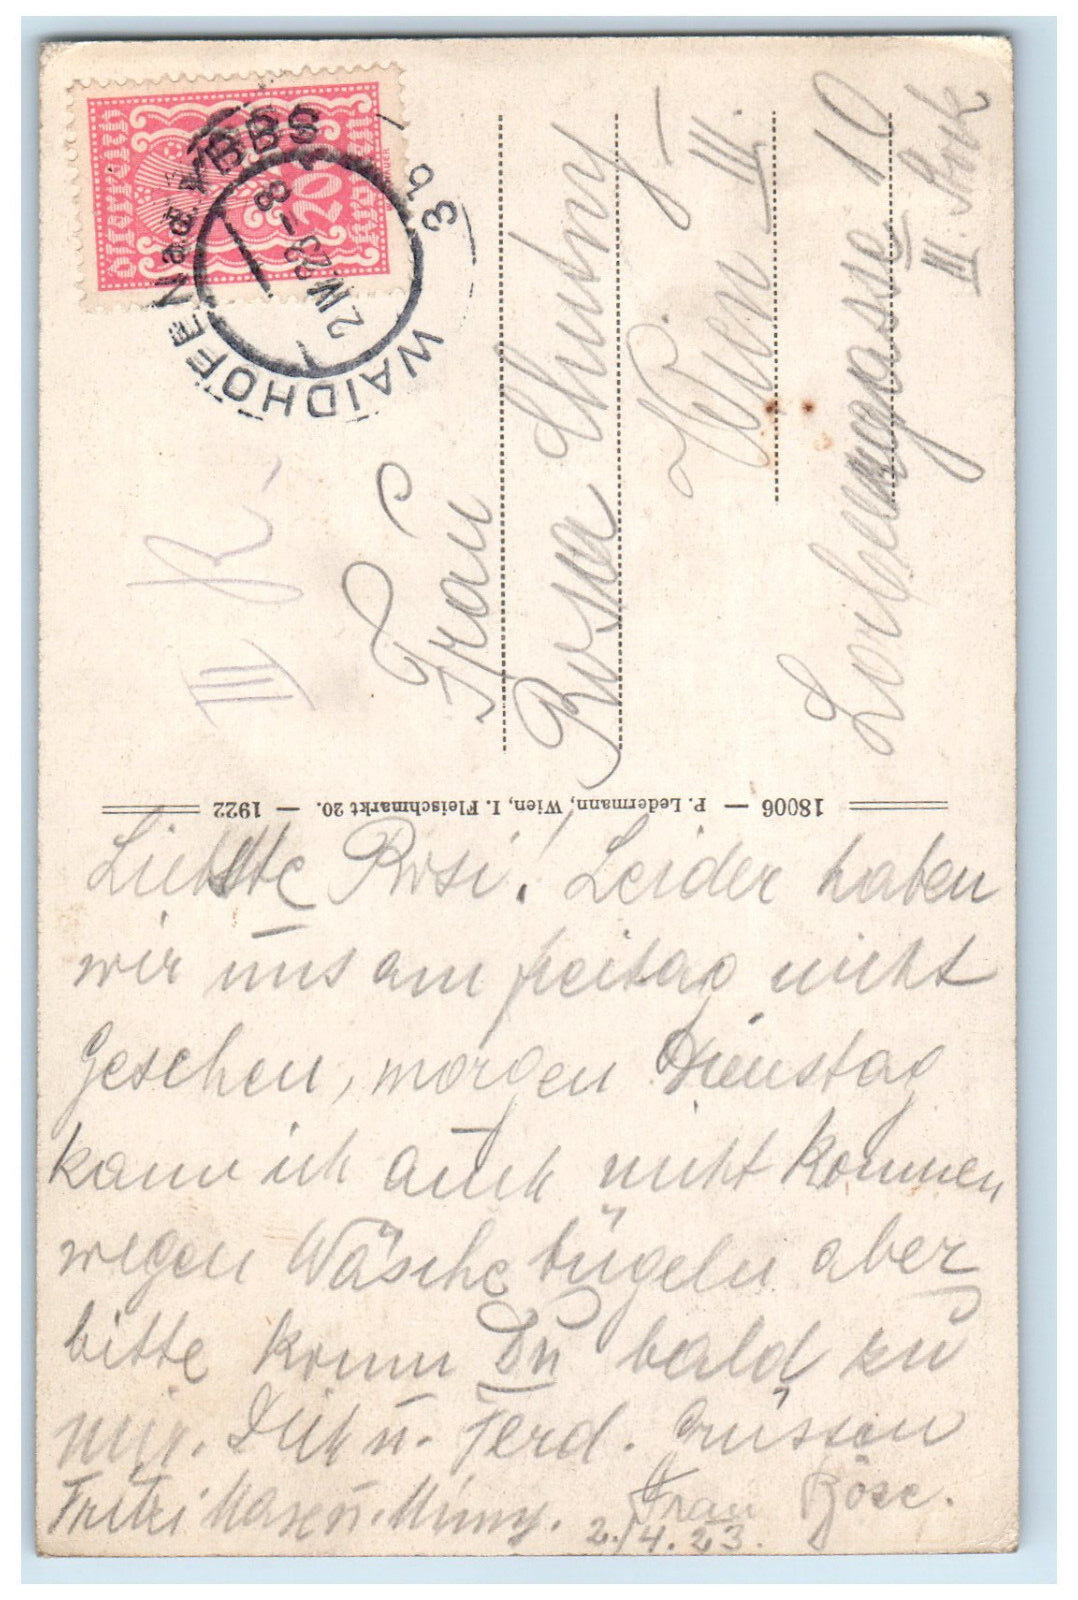 Deutschösterreich
20
WAIDHOFEN a.d. YBBS
2.IV.23 -8
3b
III K.
Frau
Rosa Chudny
Wien III.
Lorbeergasse 10
III. Stock
18006 — P. Ledermann, Wien, I. Fleischmarkt 20. — 1922
Liebste Rosi! Leider haben
wir uns am freitag nicht
Gesehen, morgen Dienstag
kann ich auch nicht kommen
wegen Wäsche bügeln aber
bitte komm Du bald zu
mir. Dich u. Ferd. Grüssen
Fritzi Maxe u. Mimy. Frau Böse.
2./4.23.